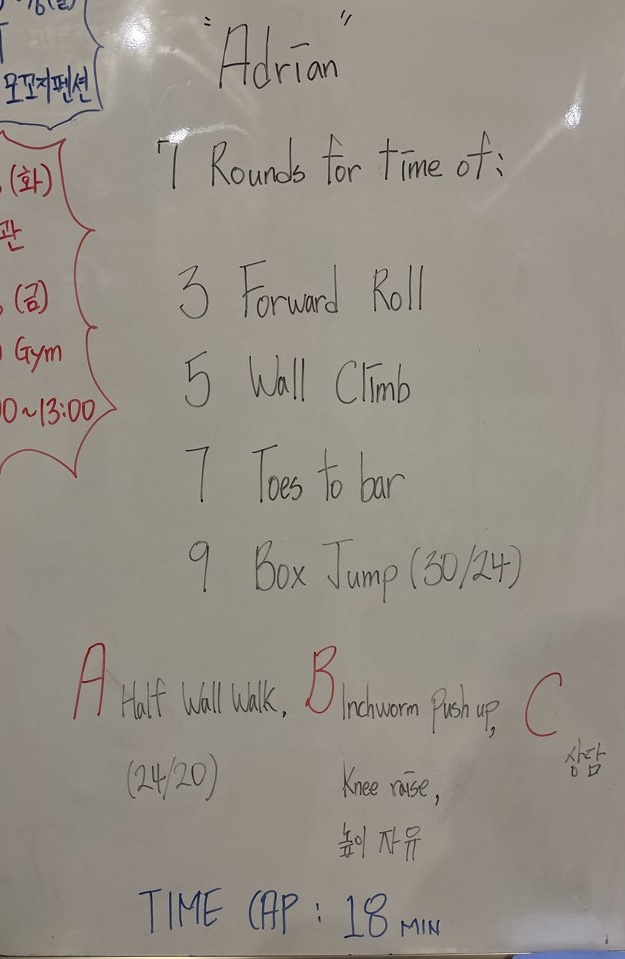 모꼬지펜션
(화)
관
(금)
Gym
00~13:00
"Adrian"
7 Rounds for time of:
3 Forward Roll
5 Wall Climb
7 Toes to bar
9 Box Jump (30/24)
A Half Wall Walk,
(24/20)
B Inchworm Push up,
Knee raise,
높이 자유
C
상담
TIME CAP : 18 MIN